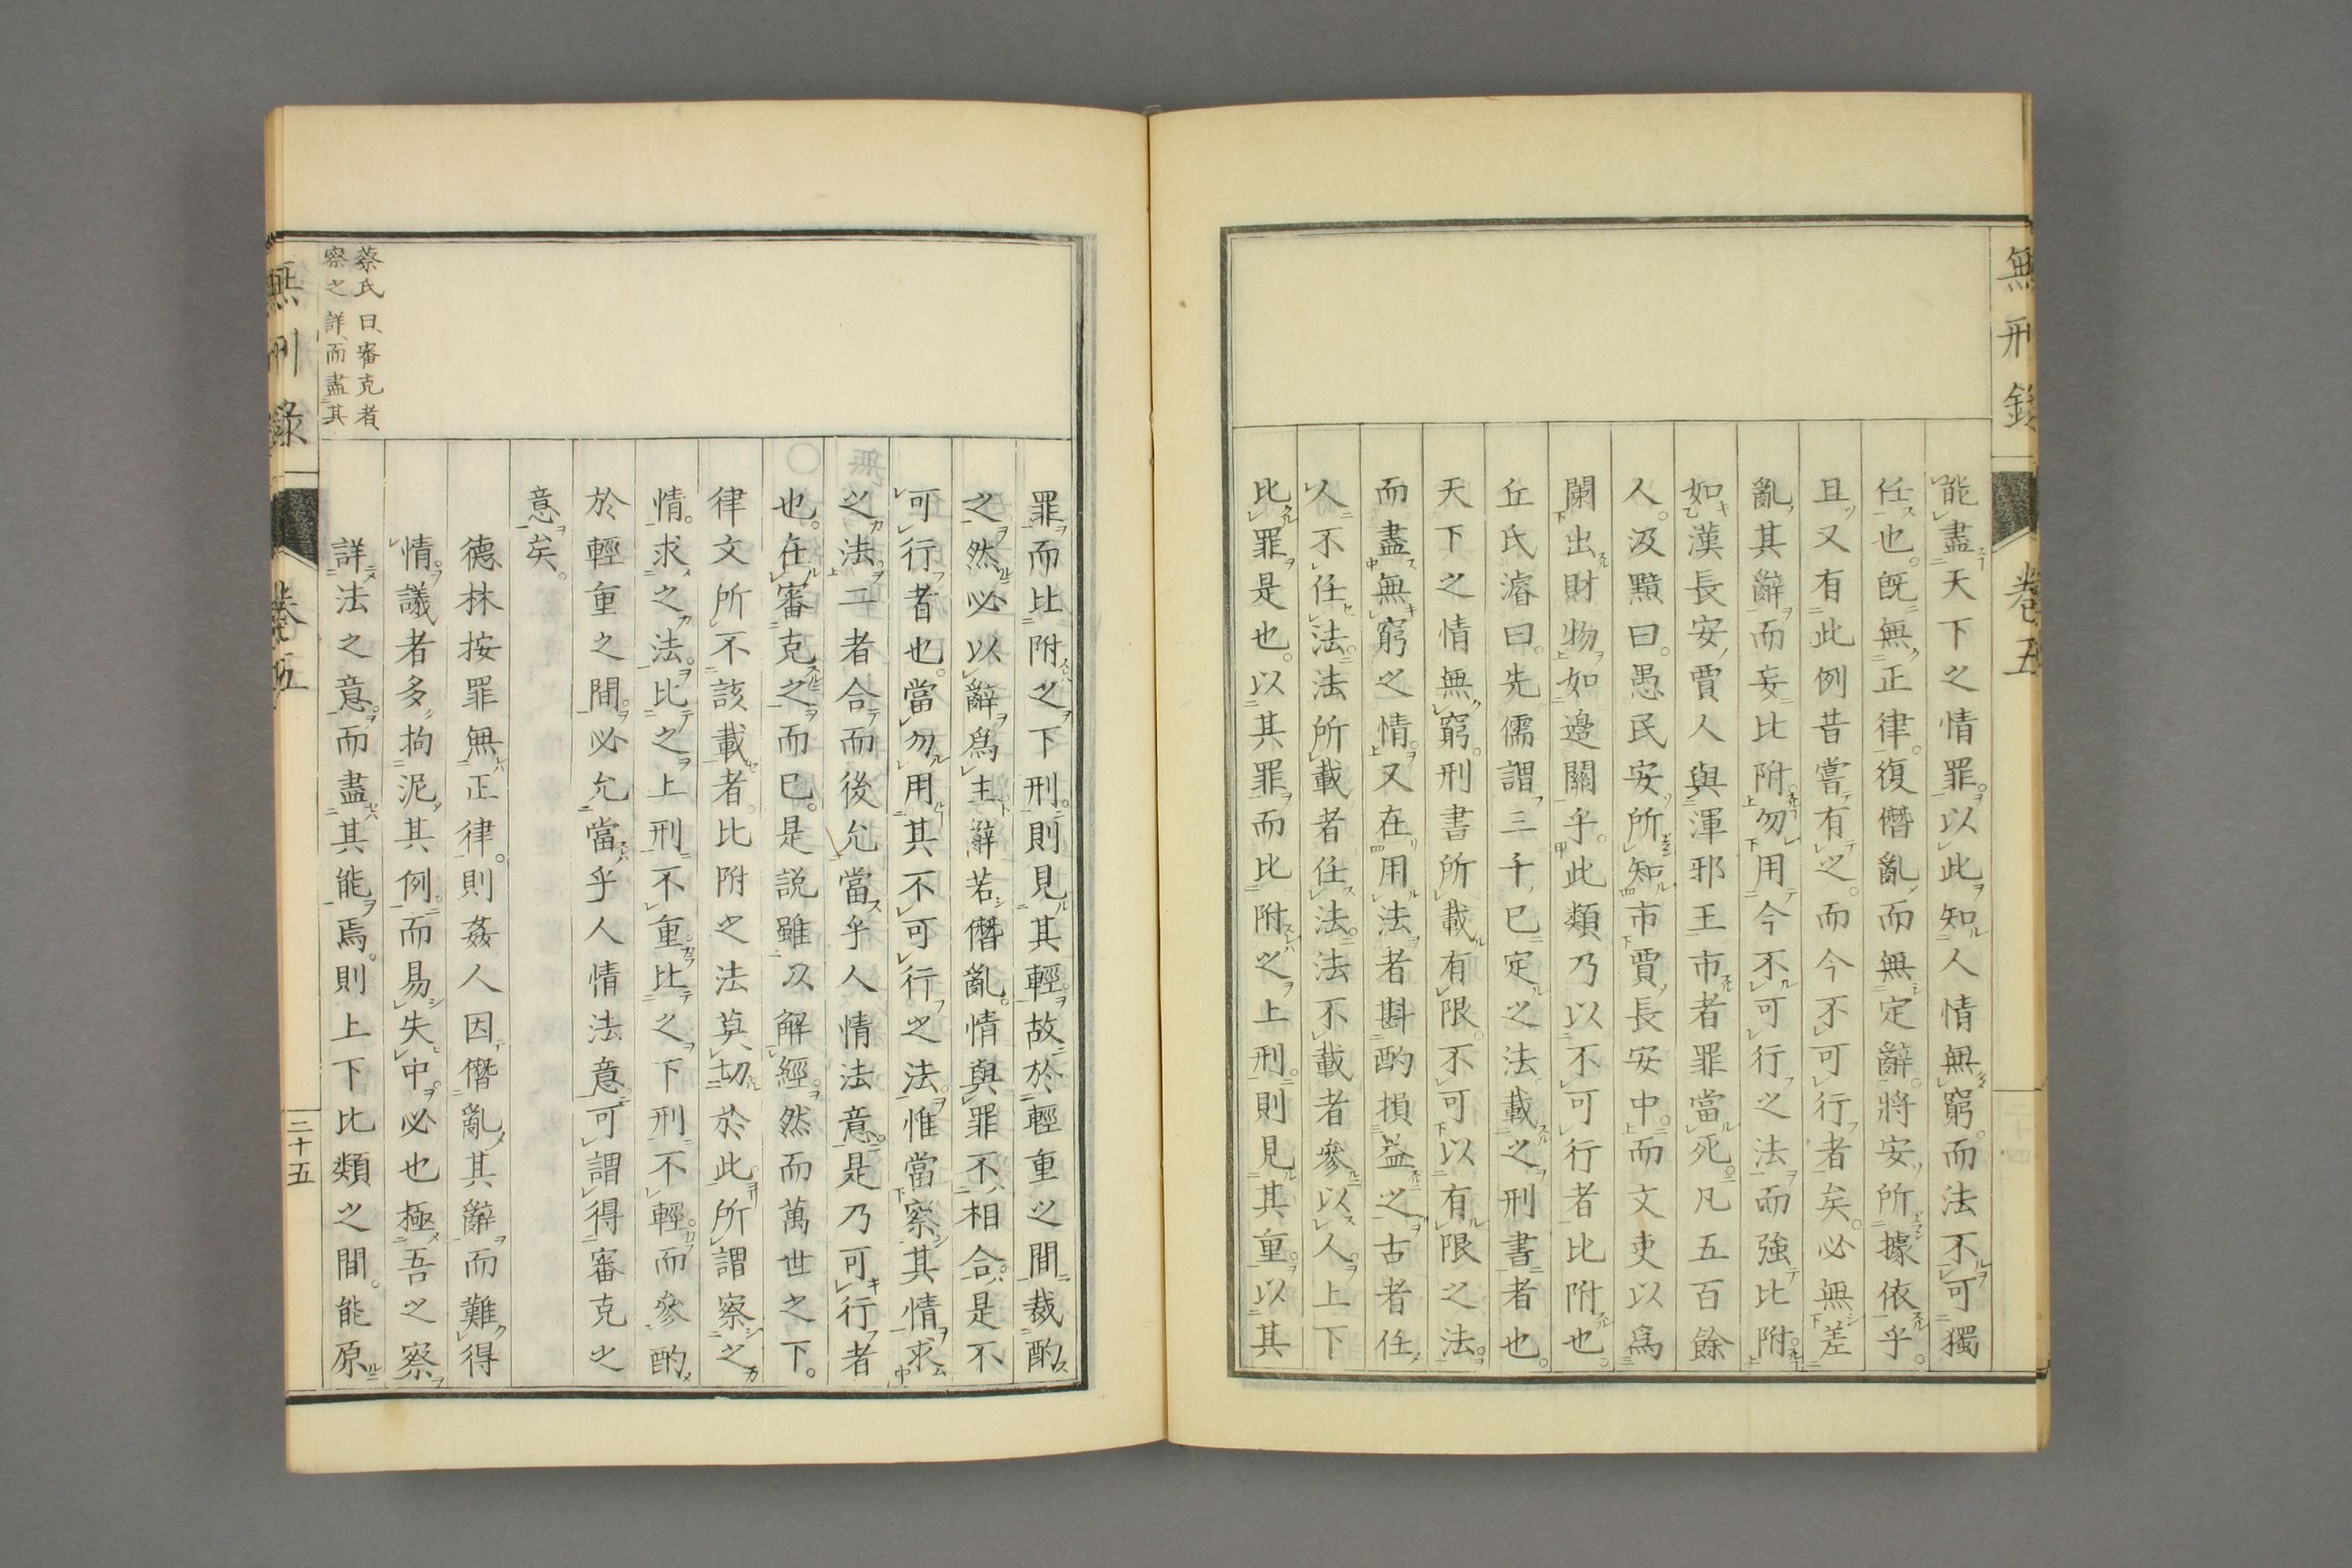 無刑錄 卷五
能盡天下之情罪以此知人情無窮而法不可獨
任也。既無正律。復僭亂而無定辭。將安所據依乎。
且又有此例昔嘗有之。而今不可行者矣。必無差
亂其辭而妄比附勿用今不可行之法而強比附
如漢長安賈人與渾邪王市者罪當死。凡五百餘
人。汲黯曰。愚民安所知市賈長安中。而文吏以爲
闌出財物如邊關乎。此類乃以不可行者比附也。
丘氏濬曰。先儒謂三千已定之法。載之刑書者也。
天下之情無窮。刑書所載有限。不可以有限之法。
而盡無窮之情。又在用法者斟酌損益之古者任
人不任法。法所載者任法。法不載者參以人。上下
比罪是也。以其罪而比附之上刑。則見其重。以其
罪而比附之下刑。則見其輕。故於輕重之間裁酌
之然必以辭爲主辭若僭亂。情與罪不相合。是不
可行者也。當勿用其不可行之法。惟當察其情求
之法。二者合而後允當乎人情法意。是乃可行者
也。在審克之而已。是説雖以解經。然而萬世之下。
律文所不該載者。比附之法莫切於此。所謂察之
情。求之法。比之上刑不重。比之下刑不輕。而參酌
於輕重之間。必允當乎人情法意。可謂得審克之
意矣。
德林按罪無正律。則姦人因僭亂其辭而難得
情。議者多拘泥其例。而易失中。必也極吾之察
詳法之意。而盡其能焉。則上下比類之間。能原
蔡氏曰、審克者
察之詳、而盡其
無刑錄 卷五 三十五